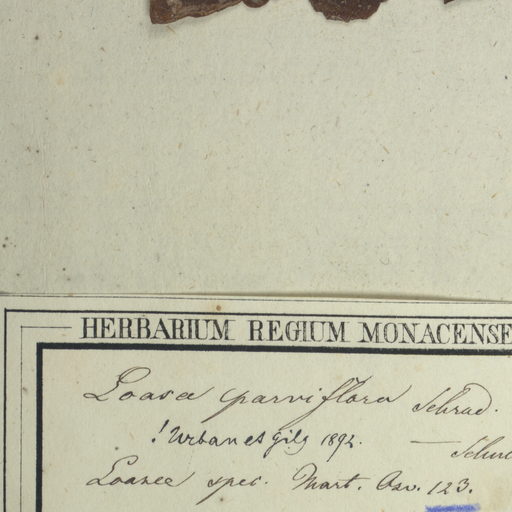 HERBARIUM REGIUM MONACENSE
Loasa parviflora Schrad.
! Urban et Gilg 1892.
Loasa spec. Mart. 123.